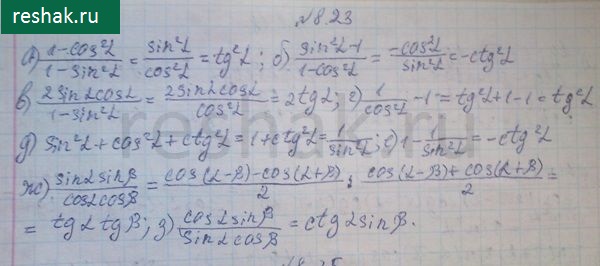 reshak.ru
№8.23
а) (1-cos²α)/(1-sin²α) = sin²α/cos²α = tg²α; б) (sin²α-1)/(1-cos²α) = -cos²α/sin²α = -ctg²α
в) 2sinαcosα/(1-sin²α) = 2sinαcosα/cos²α = 2tgα; г) 1/cos²α -1 = tg²α+1-1 = tg²α
д) sin²α+cos²α+ctg²α = 1+ctg²α = 1/sin²α; е) 1-1/sin²α = -ctg²α
ж) sinαsinβ/cosαcosβ = (cos(α-β)-cos(α+β))/2 : (cos(α-β)+cos(α+β))/2 =
= tgαtgβ; з) cosαsinβ/sinαcosβ = ctgαsinβ.